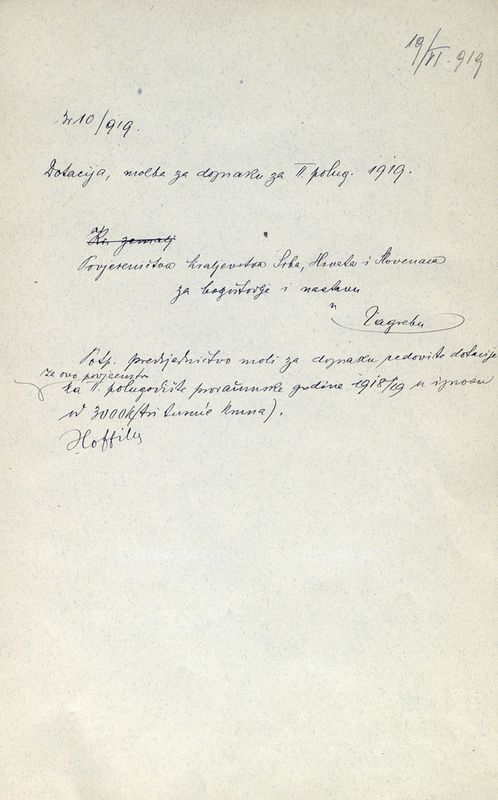 19/VI. 919
Br 10/919.
Dotacija, molba za doznaku za II. polug. 1919.
Kr. zemalj
Povjereništvu kraljevstva Srba, Hrvata i Slovenaca
za bogoštovje i nastavu
u
Zagrebu
Potp. predsjedništvo moli za doznaku redovite dotacije
za ovo povjerenstvo
za II. polugodište proračunske godine 1918/19 u iznosu
od 3000 K (tri tisuće kruna).
Hoffiller